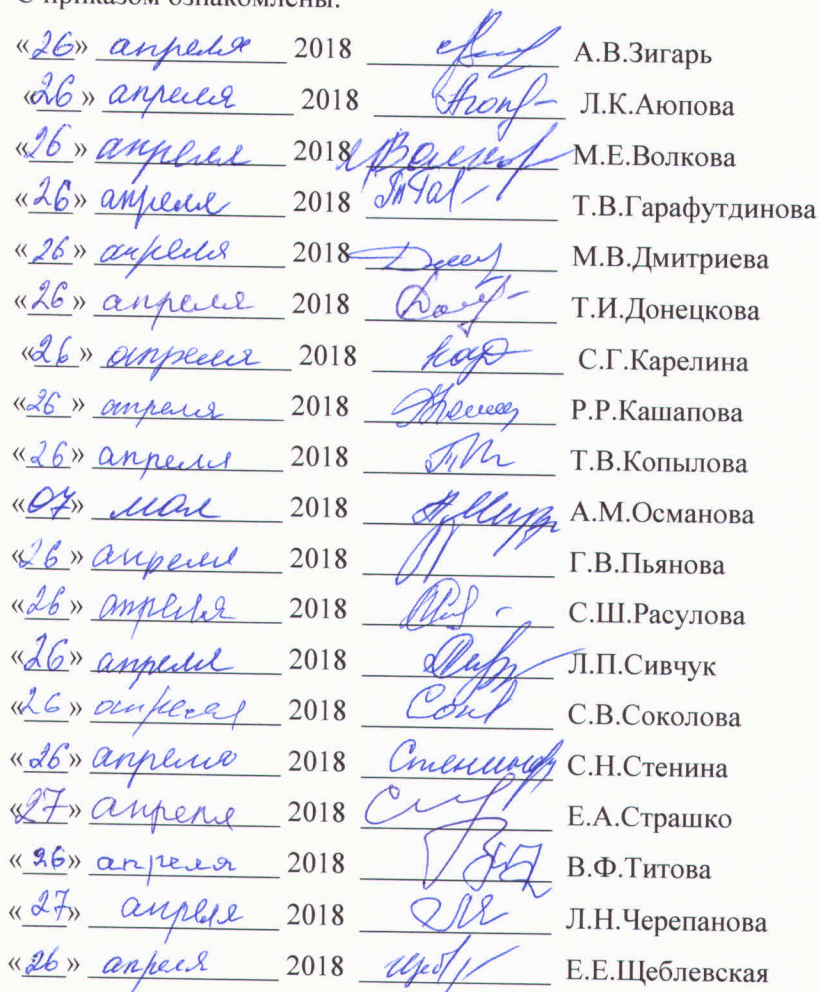 С приказом ознакомлены:
«26» апреля 2018 А.В.Зигарь
«26» апреля 2018 Л.К.Аюпова
«26» апреля 2018 Волков М.Е.Волкова
«26» апреля 2018 Т.В.Гарафутдинова
«26» апреля 2018 М.В.Дмитриева
«26» апреля 2018 Т.И.Донецкова
«26» апреля 2018 Кар С.Г.Карелина
«26» апреля 2018 Р.Р.Кашапова
«26» апреля 2018 Т.В.Копылова
«07» мая 2018 А.М.Османова
«26» апреля 2018 Г.В.Пьянова
«26» апреля 2018 С.Ш.Расулова
«26» апреля 2018 Л.П.Сивчук
«26» апреля 2018 Сок С.В.Соколова
«26» апреля 2018 С.Н.Стенина
«27» апреля 2018 Е.А.Страшко
«26» апреля 2018 В.Ф.Титова
«27» апреля 2018 Л.Н.Черепанова
«26» апреля 2018 Е.Е.Щеблевская